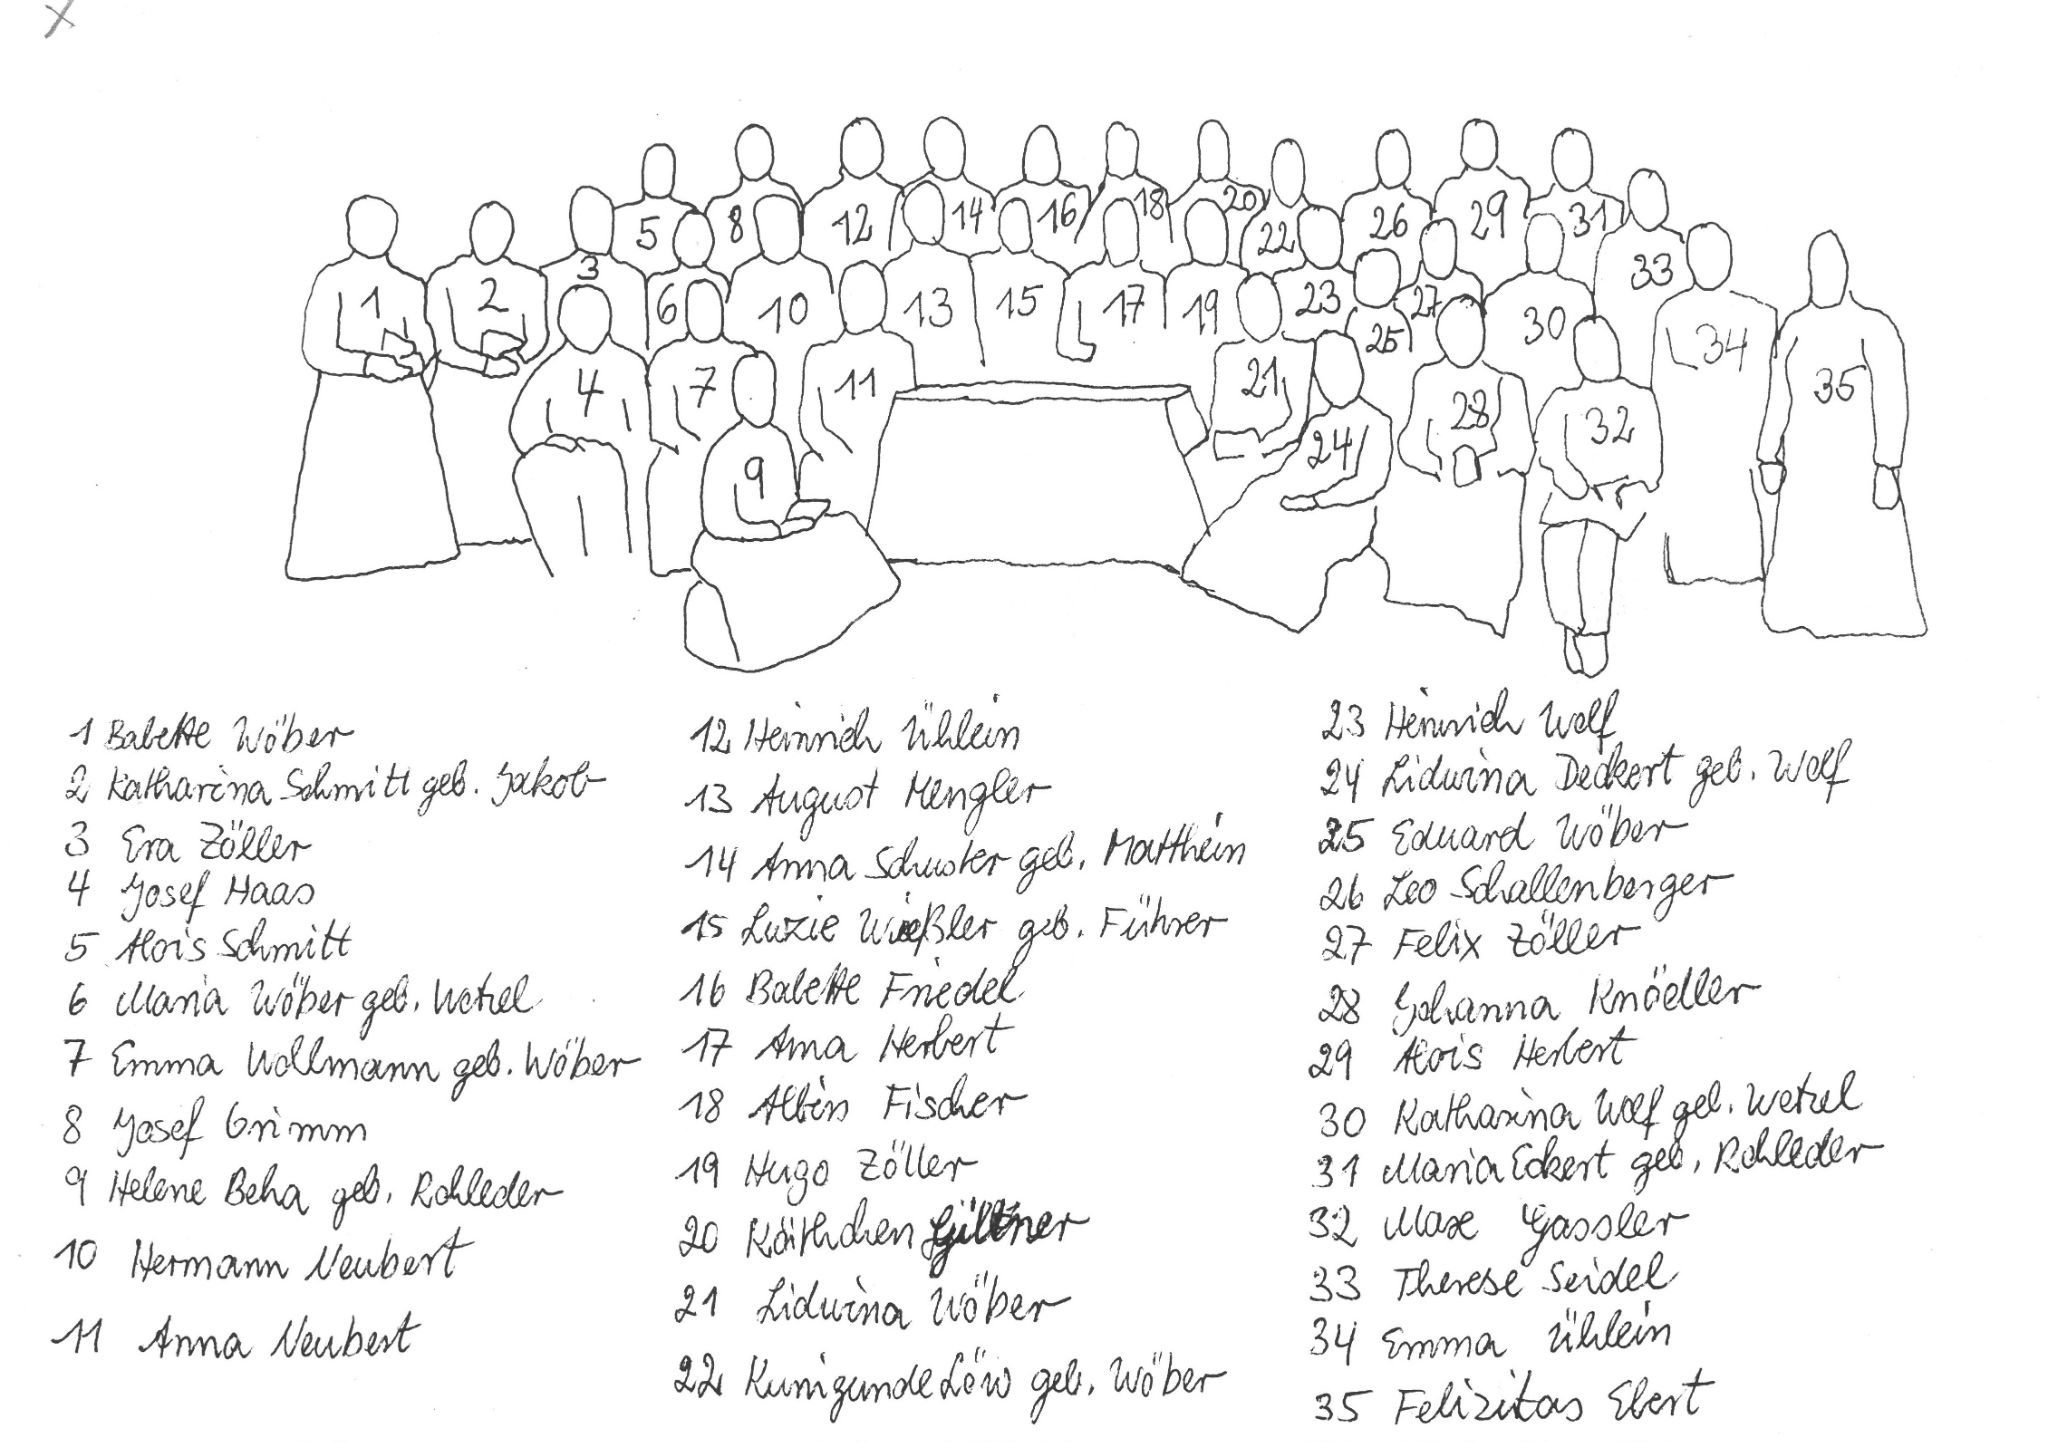 1 Babette Wöber
2 Katharina Schmitt geb. Jakob
3 Eva Zöller
4 Josef Haas
5 Alois Schmitt
6 Maria Wöber geb. Wetzel
7 Emma Wollmann geb. Wöber
8 Josef Grimm
9 Helene Beha geb. Rohleder
10 Hermann Neubert
11 Anna Neubert
12 Heinrich Ühlein
13 August Mengler
14 Anna Schuster geb. Matthein
15 Luzie Wießler geb. Führer
16 Babette Friedel
17 Anna Herbert
18 Albin Fischer
19 Hugo Zöller
20 Käthchen
21 Lidwina Wöber
22 Kunigunde Löw geb. Wöber
23 Heinrich Wolf
24 Lidwina Deckert geb. Wolf
25 Eduard Wöber
26 Leo Schallenberger
27 Felix Zöller
28 Johanna Knödler
29 Alois Herbert
30 Katharina Wolf geb. Wetzel
31 Maria Eckert geb. Rohleder
32 Max Gassler
33 Therese Seidel
34 Emma Ühlein
35 Felizitas Ebert